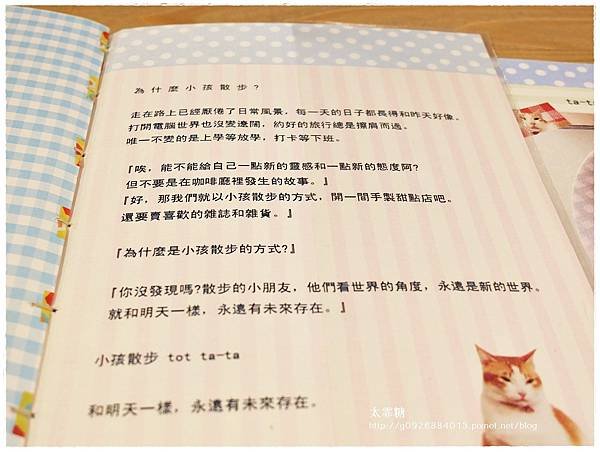 為什麼小孩散步？
走在路上已經厭倦了日常風景，每一天的日子都長得和昨天好像。
打開電腦世界也沒變遼闊，約好的旅行總是擦肩而過。
唯一不變的是上學等放學，打卡等下班。
『唉，能不能給自己一點新的靈感和一點新的態度阿?
但不要是在咖啡廳裡發生的故事。』
『好，那我們就以小孩散步的方式，開一間手製甜點店吧。
還要賣喜歡的雜誌和雜貨。』
『為什麼是小孩散步的方式?』
『你沒發現嗎?散步的小朋友，他們看世界的角度，永遠是新的世界。
就和明天一樣，永遠有未來存在。』
小孩散步 tot ta-ta
和明天一樣，永遠有未來存在。
ta-t
太霏糖
http://g0926884013.pixnet.net/blog